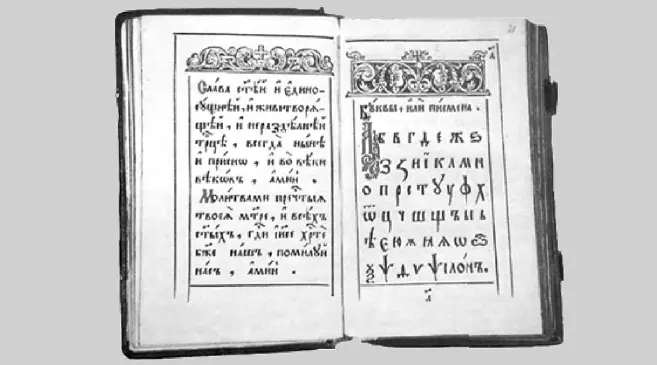 Сла́ва ст҃ѣ́й и҆ є҆дино
сꙋ́щнѣй, и҆ животворѧ́
щей, и҆ нераздѣ́лнѣй
трⷪ҇цѣ, всегда̀ ны́нѣ
и҆ при́снѡ, и҆ во вѣ́ки
вѣкѡ́въ, а҆ми́нь.
Моли́твами пречⷭ҇тыѧ
твоеѧ̀ мт҃ре, и҆ всѣ́хъ
ст҃ы́хъ, гдⷭ҇и і҆и҃се хрⷭ҇те
бж҃е на́шъ, поми́лꙋй
на́съ, а҆ми́нь.
Бꙋ́квы, и҆лѝ пи́смена.
А б в г д е ж ѕ
з и і к л м н
о п р с т ꙋ у ф х
ѿ ц ч ш щ ъ ы ь
ѣ є ю ѫ ѧ ѡ
ѯ ѱ ѵ ѱило́нъ.